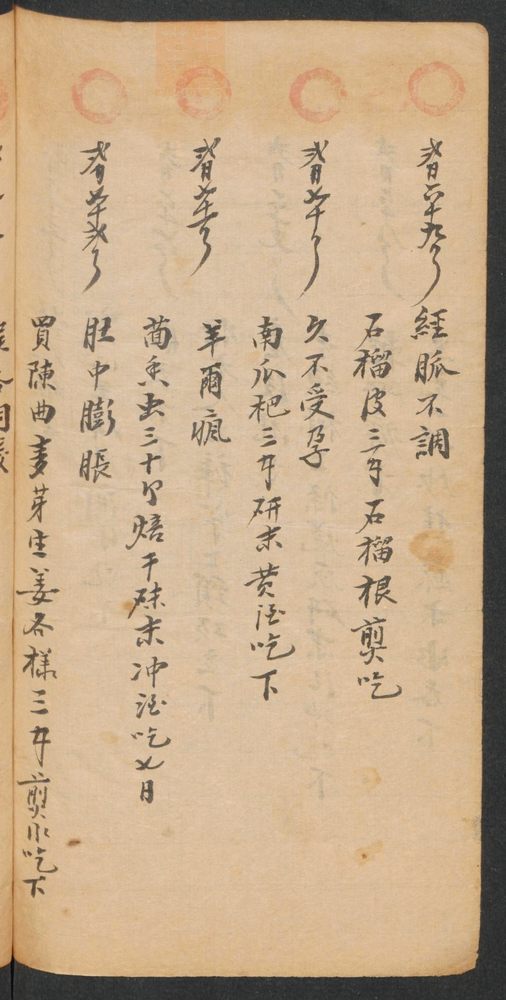 六十九 經脈不調
石榴皮三石榴根煎吃
七十 久不受孕
南瓜杷三研末黄酒吃下
七十一 羊爾瘋
茴香虫三十个焙干研末冲酒吃七日
七十二 肚中膨脹
買陳曲麦芽生姜各樣三煎水吃下